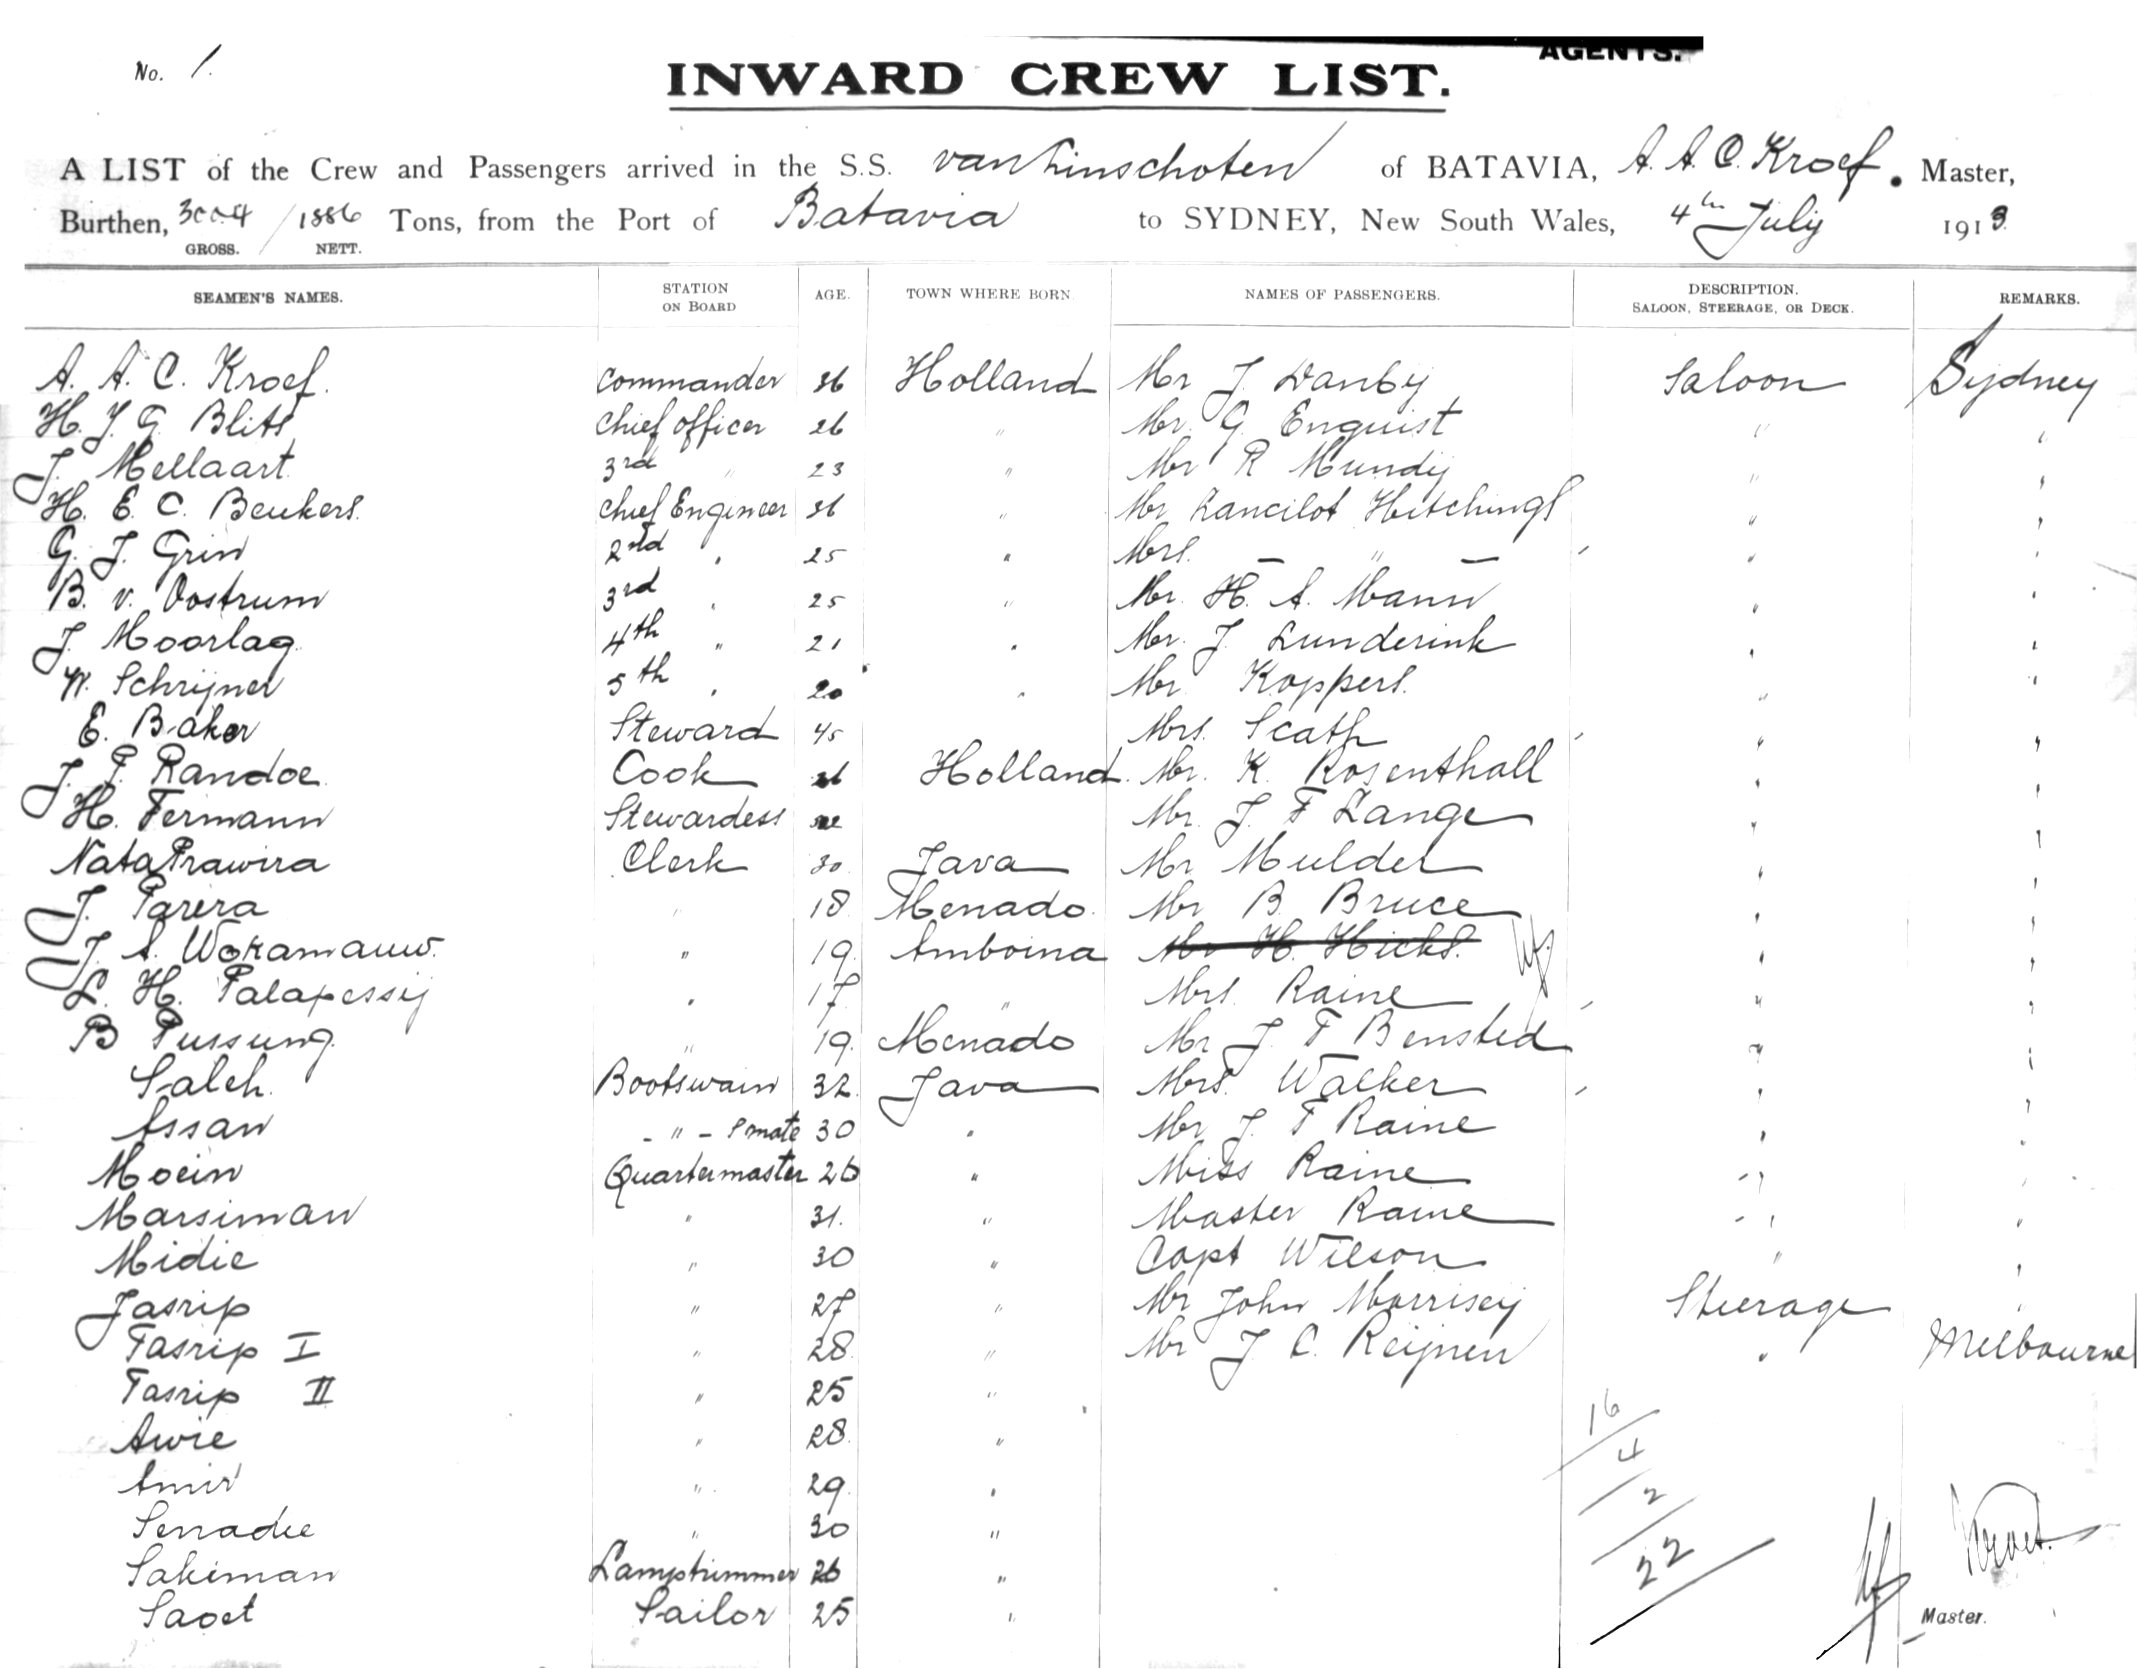 AGENTS.
No. 1.
INWARD CREW LIST.
A LIST of the Crew and Passengers arrived in the S.S. van Linschoten of BATAVIA, A. A. C. Kroef. Master,
Burthen, 3004 / 1886 Tons, from the Port of Batavia to SYDNEY, New South Wales, 4th July 1913
GROSS. NETT.
SEAMEN'S NAMES. STATION ON BOARD AGE. TOWN WHERE BORN NAMES OF PASSENGERS. DESCRIPTION. SALOON, STEERAGE, OR DECK. REMARKS.
A. A. C. Kroef. Commander 36 Holland Mr J. Danby Saloon Sydney
H. J. G. Blits Chief officer 26 " Mr. G. Enquist " "
J. Mellaart 3rd " 23 " Mr R Mundy " "
H. E. C. Beukers. Chief Engineer 36 " Mr Lancilot Hitchings " "
G. J. Grin 2nd " 25 " Mrs. — " — " "
B. v. Oostrum 3rd " 25 " Mr. H. A. Mann " "
J. Moorlag 4th " 21 " Mr. J. Lunderink " "
W. Schrijner 5th " 20 " Mr Koppers. " "
E. Baker Steward 45 Mrs. Scath " "
J. P. Randoe Cook Holland. Mr. K. Rosenthall " "
H. Fermann Stewardess Mr. J. F Lange " "
Nata Prawira Clerk 30 Java Mr Mulder " "
J. Parera " 18 Menado. Mr B. Bruce " "
J. A. Wokamauw. " 19. Amboina Mr H. Hicks. " "
L. H. Palapessij " 17 " Mrs. Raine " "
B Pussung. " 19. Menado Mr J. F Bensted " "
Saleh. Bootswain 32. Java Mrs. Walker " "
Assan - " - s mate 30 " Mr J. F Raine " "
Moein Quartermaster 26 " Miss Raine " "
Marsiman " 31. " Master Raine " "
Midie " 30 " Capt Wilson " "
Jasrip " 27 " Mr John Morrisey Steerage "
Tasrip I " 28. " Mr J. C. Reijnen " Melbourne
Tasrip II " 25 "
Awie " 28. "
Amir " 29. "
Senadie " 30 "
Sakiman Lamptrimmer 26 "
Saoet Sailor 25 "
16
4
2
22
Kroef.
Master.